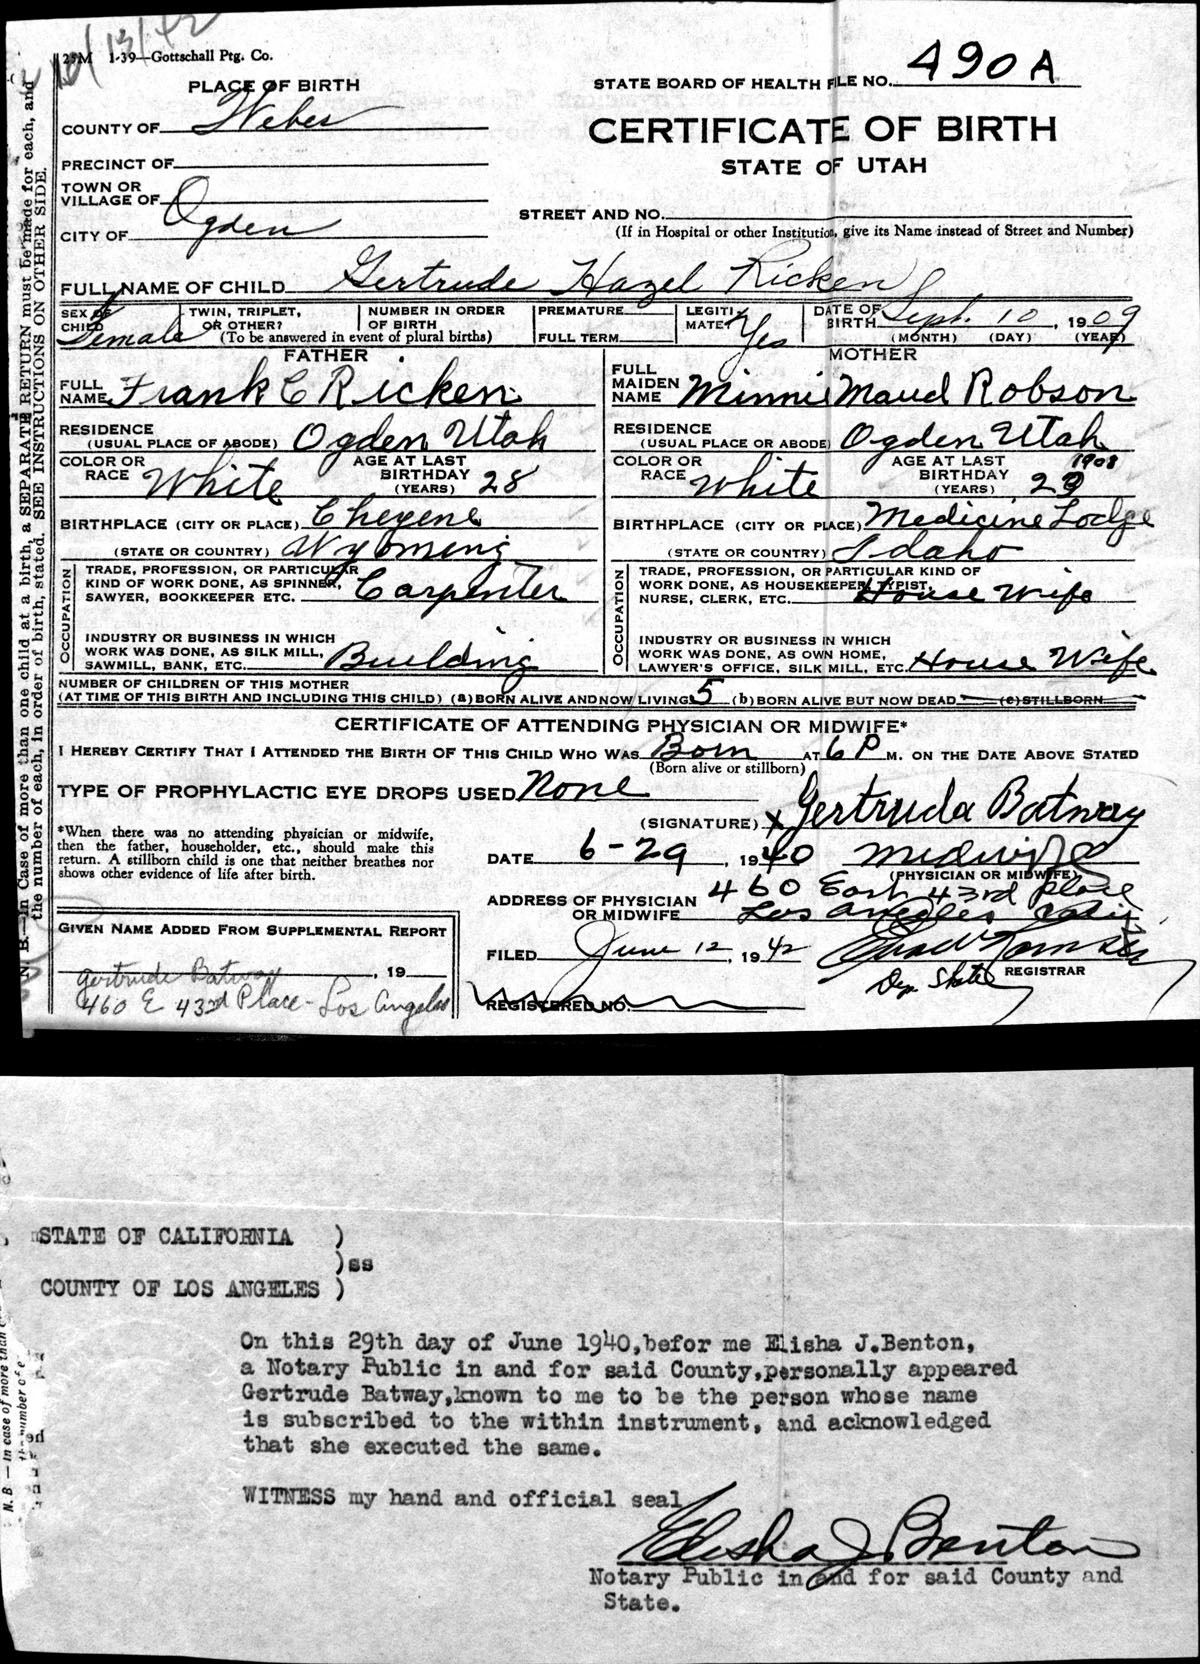 10/13/42
25M 1-39—Gottschall Ptg. Co.
PLACE OF BIRTH
COUNTY OF Weber
PRECINCT OF
TOWN OR
VILLAGE OF
CITY OF Ogden
STATE BOARD OF HEALTH FILE NO. 490 A
CERTIFICATE OF BIRTH
STATE OF UTAH
STREET AND NO.
(If in Hospital or other Institution, give its Name instead of Street and Number)
FULL NAME OF CHILD Gertrude Hazel Ricken
SEX OF CHILD Female
TWIN, TRIPLET, OR OTHER?
NUMBER IN ORDER OF BIRTH
(To be answered in event of plural births)
PREMATURE
FULL TERM
LEGITIMATE? Yes
DATE OF BIRTH Sept. 10, 1909
(MONTH) (DAY) (YEAR)
FATHER
FULL NAME Frank C Ricken
RESIDENCE (USUAL PLACE OF ABODE) Ogden Utah
COLOR OR RACE White AGE AT LAST BIRTHDAY (YEARS) 28
BIRTHPLACE (CITY OR PLACE) Cheyene
(STATE OR COUNTRY) Wyoming
OCCUPATION
TRADE, PROFESSION, OR PARTICULAR
KIND OF WORK DONE, AS SPINNER,
SAWYER, BOOKKEEPER ETC. Carpenter
INDUSTRY OR BUSINESS IN WHICH
WORK WAS DONE, AS SILK MILL,
SAWMILL, BANK, ETC. Building
MOTHER
FULL MAIDEN NAME Minnie Maud Robson
RESIDENCE (USUAL PLACE OR ABODE) Ogden Utah
COLOR OR RACE White AGE AT LAST BIRTHDAY (YEARS) 1908
BIRTHPLACE (CITY OR PLACE) Medicine Lodge
(STATE OR COUNTRY) Idaho
OCCUPATION
TRADE, PROFESSION, OR PARTICULAR KIND OF
WORK DONE, AS HOUSEKEEPER, TYPIST,
NURSE, CLERK, ETC. House Wife
INDUSTRY OR BUSINESS IN WHICH
WORK WAS DONE, AS OWN HOME,
LAWYER'S OFFICE, SILK MILL, ETC. House Wife
NUMBER OF CHILDREN OF THIS MOTHER
(AT TIME OF THIS BIRTH AND INCLUDING THIS CHILD) (a) BORN ALIVE AND NOW LIVING 5 (b) BORN ALIVE BUT NOW DEAD (c) STILLBORN
CERTIFICATE OF ATTENDING PHYSICIAN OR MIDWIFE*
I HEREBY CERTIFY THAT I ATTENDED THE BIRTH OF THIS CHILD WHO WAS Born AT 6 P M. ON THE DATE ABOVE STATED
(Born alive or stillborn)
TYPE OF PROPHYLACTIC EYE DROPS USED None
*When there was no attending physician or midwife,
then the father, householder, etc., should make this
return. A stillborn child is one that neither breathes nor
shows other evidence of life after birth.
(SIGNATURE) x Gertruda Batway
DATE 6-29, 1940 Midwife
(PHYSICIAN OR MIDWIFE)
ADDRESS OF PHYSICIAN OR MIDWIFE 460 East 43rd Place
Los Angeles
FILED June 12, 1942
REGISTRAR
Dep. State
REGISTERED NO.
GIVEN NAME ADDED FROM SUPPLEMENTAL REPORT
, 19
Gertrude Batway
460 E 43rd Place - Los Angeles
N. B.—In Case of more than one child at a birth, a SEPARATE RETURN must be made for each, and
the number of each, in order of birth, stated. SEE INSTRUCTIONS ON OTHER SIDE.
STATE OF CALIFORNIA )
)ss
COUNTY OF LOS ANGELES )
On this 29th day of June 1940,befor me Elisha J.Benton,
a Notary Public in and for said County,personally appeared
Gertrude Batway,known to me to be the person whose name
is subscribed to the within instrument, and acknowledged
that she executed the same.
WITNESS my hand and official seal
Elisha J Benton
Notary Public in and for said County and
State.
N. B.—In case of more than
the number of e